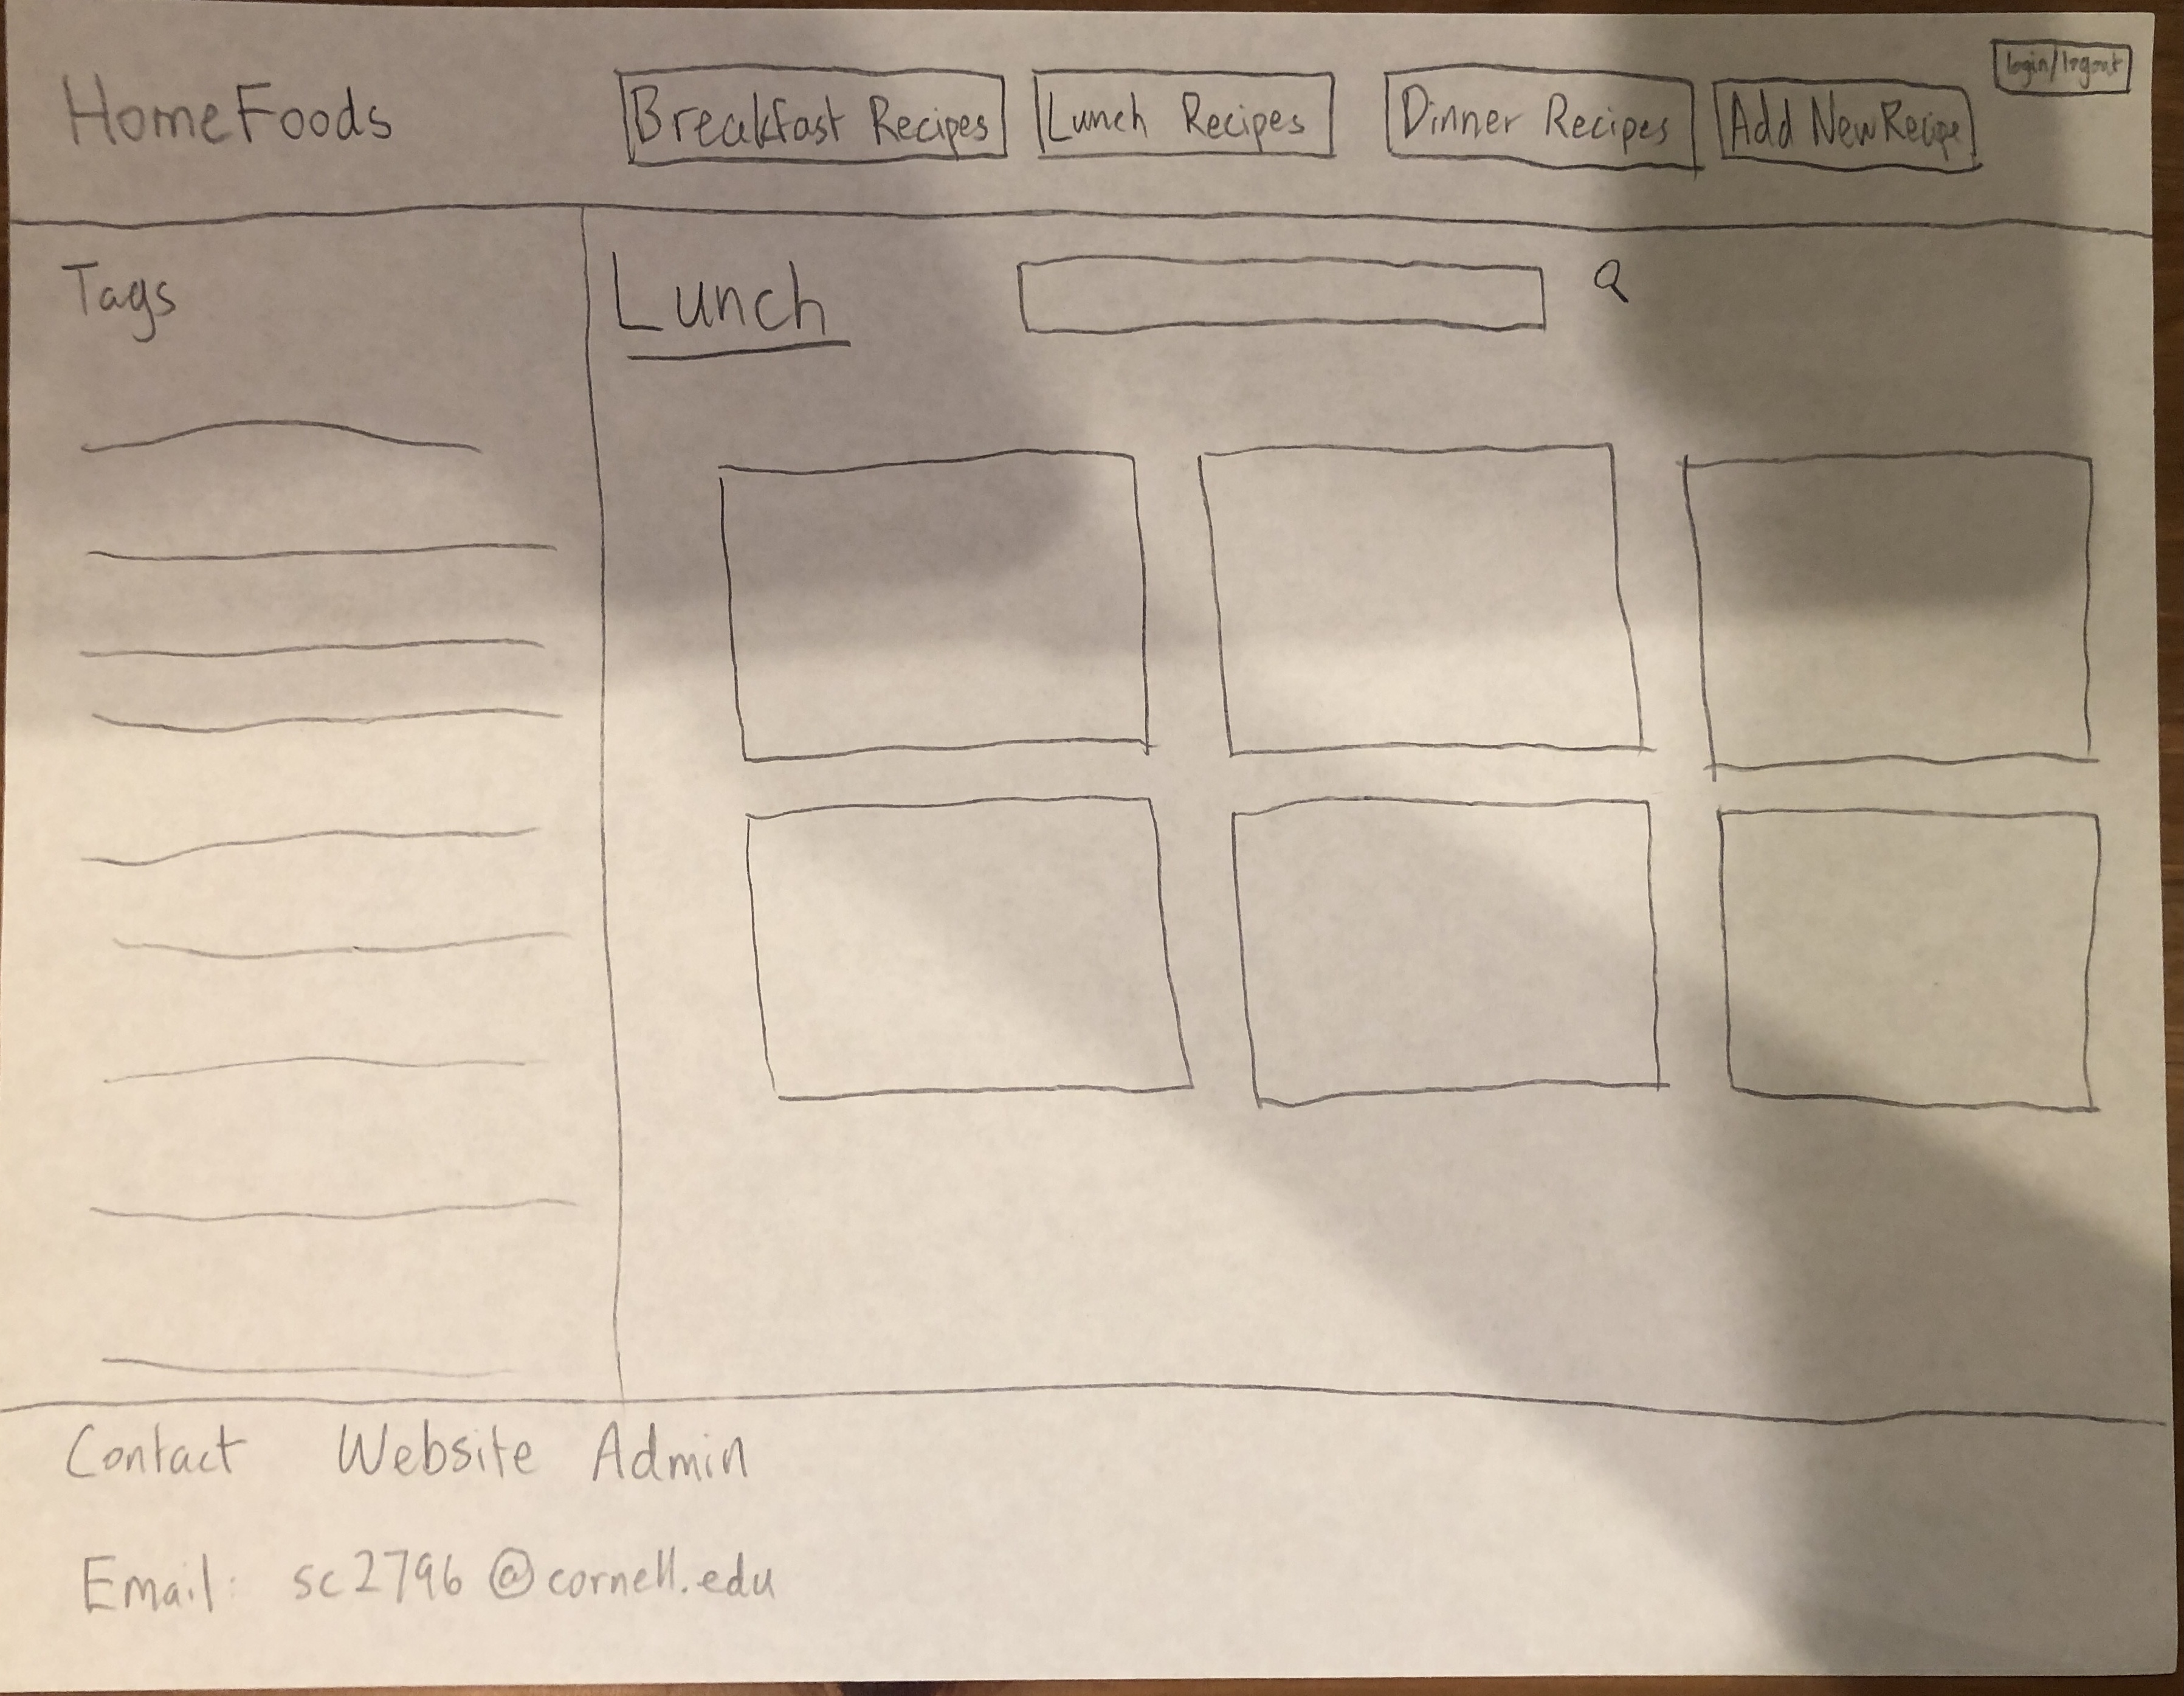 HomeFoods
Breakfast Recipes
Lunch Recipes
Dinner Recipes
Add New Recipe
login/logout
Tags
Lunch
Contact Website Admin
Email: sc2796@cornell.edu